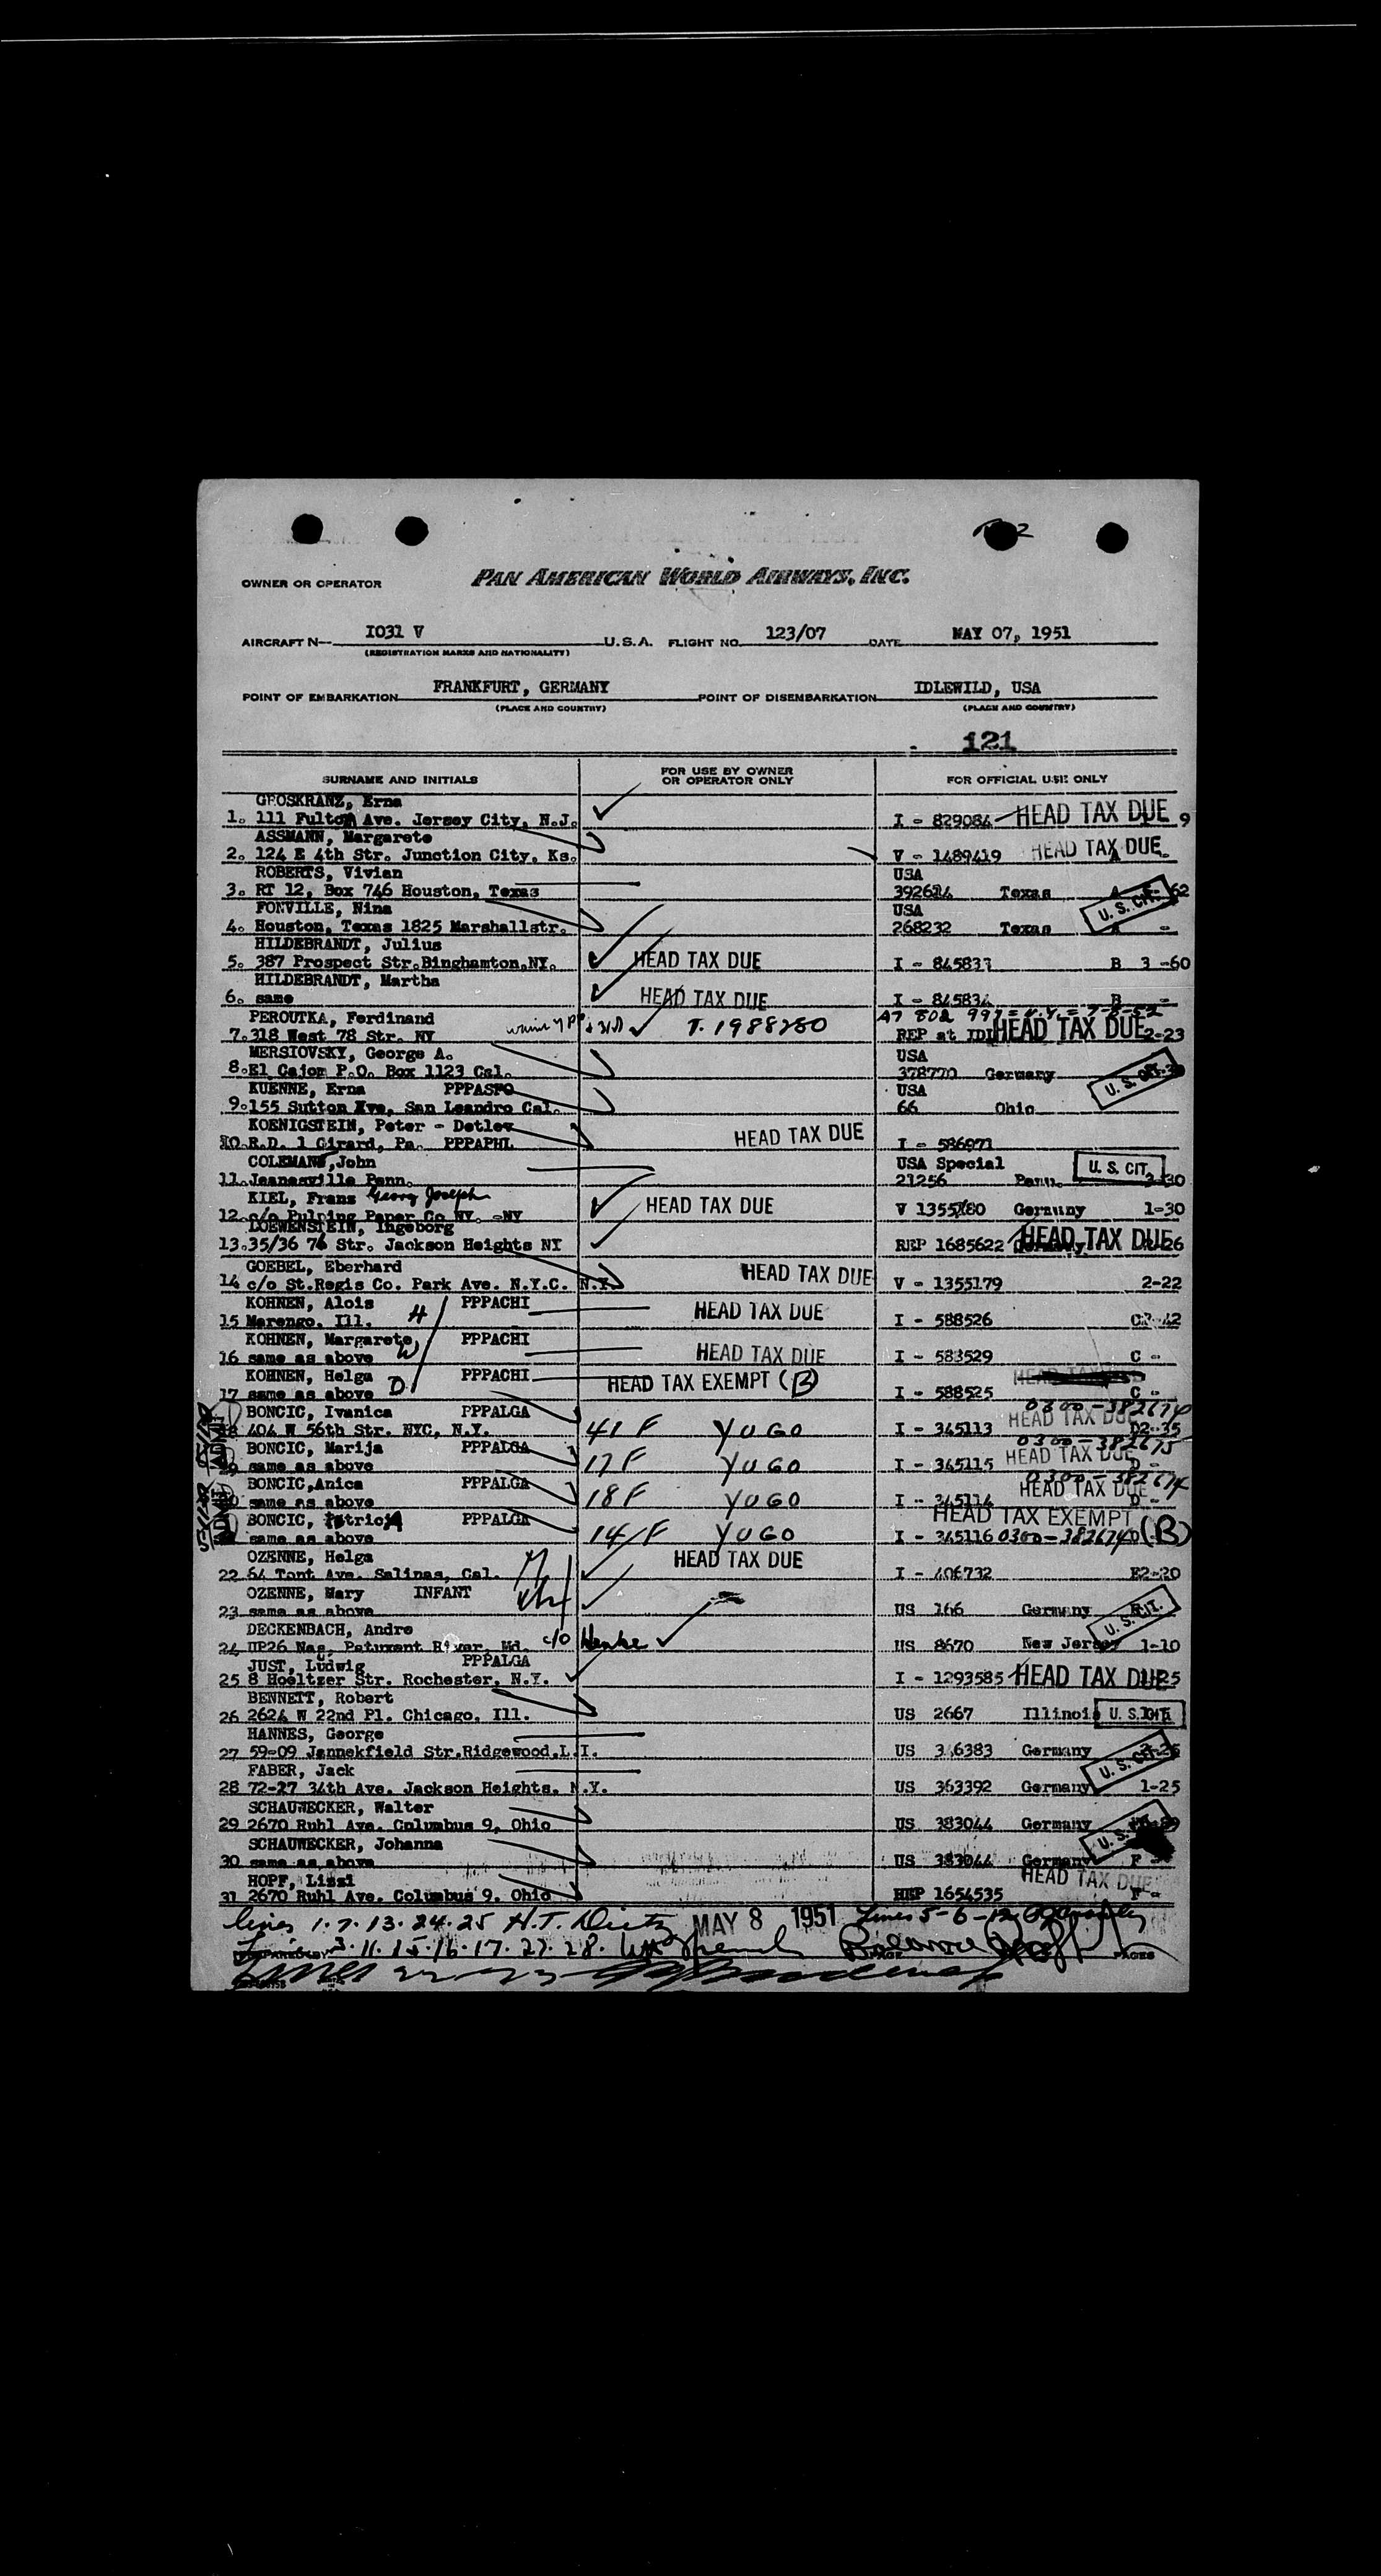 OWNER OR OPERATOR PAN AMERICAN WORLD AIRWAYS, INC.
AIRCRAFT N— 1031 V U.S.A. FLIGHT NO. 123/07 DATE MAY 07, 1951
(REGISTRATION MARKS AND NATIONALITY)
POINT OF EMBARKATION FRANKFURT, GERMANY POINT OF DISEMBARKATION IDLEWILD, USA
(PLACE AND COUNTRY) (PLACE AND COUNTRY)
121
SURNAME AND INITIALS FOR USE BY OWNER OR OPERATOR ONLY FOR OFFICIAL USE ONLY
GROSKRANZ, Erna
1. 111 Fulton Ave. Jersey City, N.J. I - 829084 HEAD TAX DUE 9
ASSMANN, Margarete
2. 124 E 4th Str. Junction City, Ks. V - 1489419 HEAD TAX DUE A
ROBERTS, Vivian USA
3. RT 12, Box 746 Houston, Texas Texas A 62
FONVILLE, Nina USA U. S. CIT.
4. Houston, Texas 1825 Marshallstr. 268232 Texas A -
HILDEBRANDT, Julius
5. 387 Prospect Str.Binghamton,NY. HEAD TAX DUE I - 845833 B 3 -60
HILDEBRANDT, Martha
6. same HEAD TAX DUE I - 845834 B -
PEROUTKA, Ferdinand
7.318 West 78 Str. NY T. 1988280 REP at IDL HEAD TAX DUE 2-23
MERSIOVSKY, George A. USA
8.El Cajon P.O. Box 1123 Cal. 378770 Germany U. S. CIT.
KUENNE, Erna PPPASFO USA
9.155 Sutton Ave, San Leandro Cal. 66 Ohio
KOENIGSTEIN, Peter - Detlev
10.R.D. 1 Girard, Pa. PPPAPHL HEAD TAX DUE I - 586971
COLEMAN, John USA Special U. S. CIT.
11.Jeanesville Penn. 21256 Penn. 3-30
KIEL, Frans Georg Joseph
12.c/o Pulping Paper Co NY. -NY HEAD TAX DUE V 1355180 Germany 1-30
LOEWENSTEIN, Ingeborg
13.35/36 76 Str. Jackson Heights NY REP 1685622 HEAD TAX DUE 26
GOEBEL, Eberhard
14 c/o St.Regis Co. Park Ave. N.Y.C. N.Y. HEAD TAX DUE V - 1355179 2-22
KOHNEN, Alois H PPPACHI
15 Marengo, Ill. HEAD TAX DUE I - 588526 C2-42
KOHNEN, Margarete W PPPACHI
16 same as above HEAD TAX DUE I - 583529 C -
KOHNEN, Helga D PPPACHI
17 same as above HEAD TAX EXEMPT (B) I - 588525 C -
BONCIC, Ivanica PPPALGA 0300-382674
18 404 W 56th Str. NYC, N.Y. 41 F YUGO I - 345113 HEAD TAX DUE D2-35
BONCIC, Marija PPPALGA 0300-382675
19 same as above 17 F YUGO I - 345115 HEAD TAX DUE D -
BONCIC,Anica PPPALGA 0300-382674
20 same as above 18 F YUGO I - 345114 HEAD TAX DUE D -
BONCIC, PPPALGA HEAD TAX EXEMPT (B)
same as above 14 F YUGO I - 345116 0300-382674
OZENNE, Helga HEAD TAX DUE
22 64 Tont Ave. Salinas, Cal. I - 406732 E2-20
OZENNE, Mary INFANT
23 same as above US 166 Germany
DECKENBACH, Andre
24 Patuxent River, Md. c/o US 8670 New Jersey 1-10
JUST, Ludwig PPPALGA
25 8 Hoeltzer Str. Rochester, N.Y. I - 1293585 HEAD TAX DUE
BENNETT, Robert
26 2624 W 22nd Pl. Chicago, Ill. US 2667 Illinois U. S. CIT.
HANNES, George
27 59-09 Jannekfield Str.Ridgewood,L.I. US 346383 Germany U. S. CIT.
FABER, Jack
28 72-27 34th Ave. Jackson Heights, N.Y. US 363392 Germany 1-25
SCHAUWECKER, Walter
29 2670 Ruhl Ave. Columbus 9, Ohio US 383044 Germany
SCHAUWECKER, Johanna
30 same as above US 383044 Germany F -
HOPF, Lissi HEAD TAX DUE
31 2670 Ruhl Ave. Columbus 9, Ohio REP 1654535 F -
lines 1.7.13.24.25 H.T. Dietz MAY 8 1951 Lines 5-6-12
3.11.15.16.17.27.28. Balance
PAGES